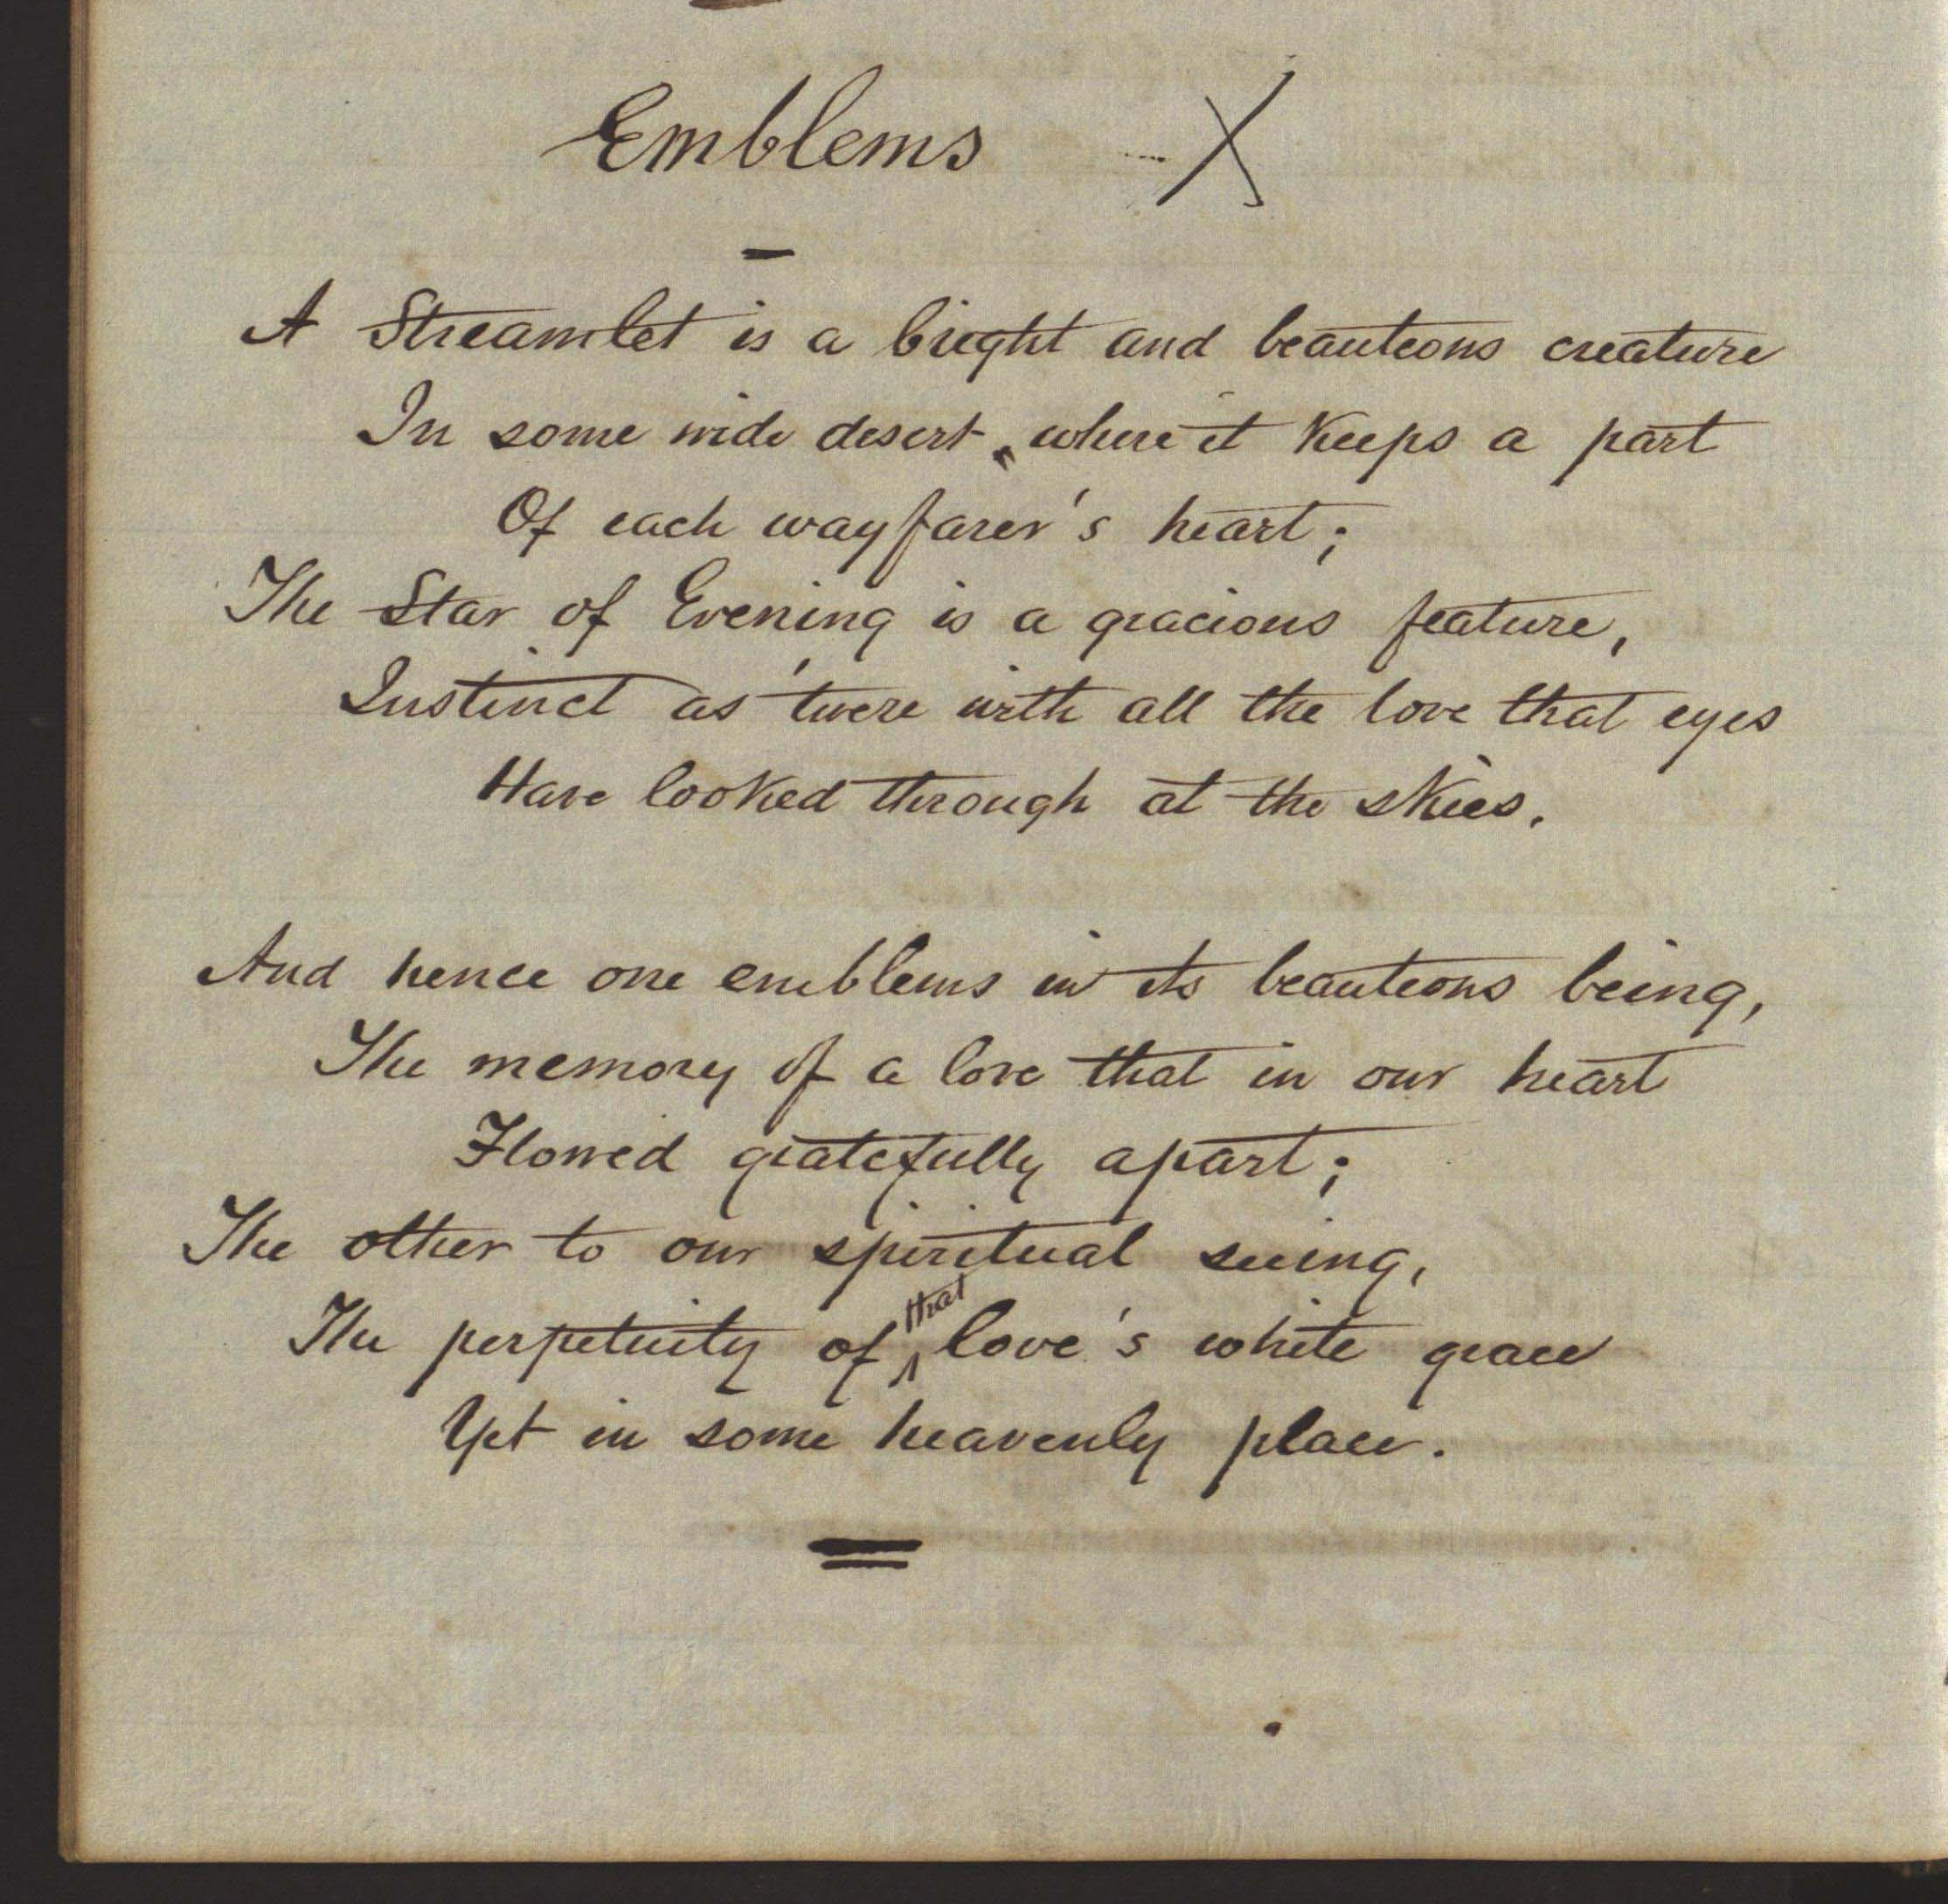 Emblems X
A Streamlet is a bright and beauteous creature
In some wide desert, where it keeps a part
Of each wayfarer's heart;
The Star of Evening is a gracious feature,
Instinct as 'twere with all the love that eyes
Have looked through at the skies.
And hence one emblems in its beauteous being,
The memory of a love that in our heart
Flowed gratefully apart;
The other to our spiritual seeing,
The perpetuity of that love's white grace
Yet in some heavenly place.